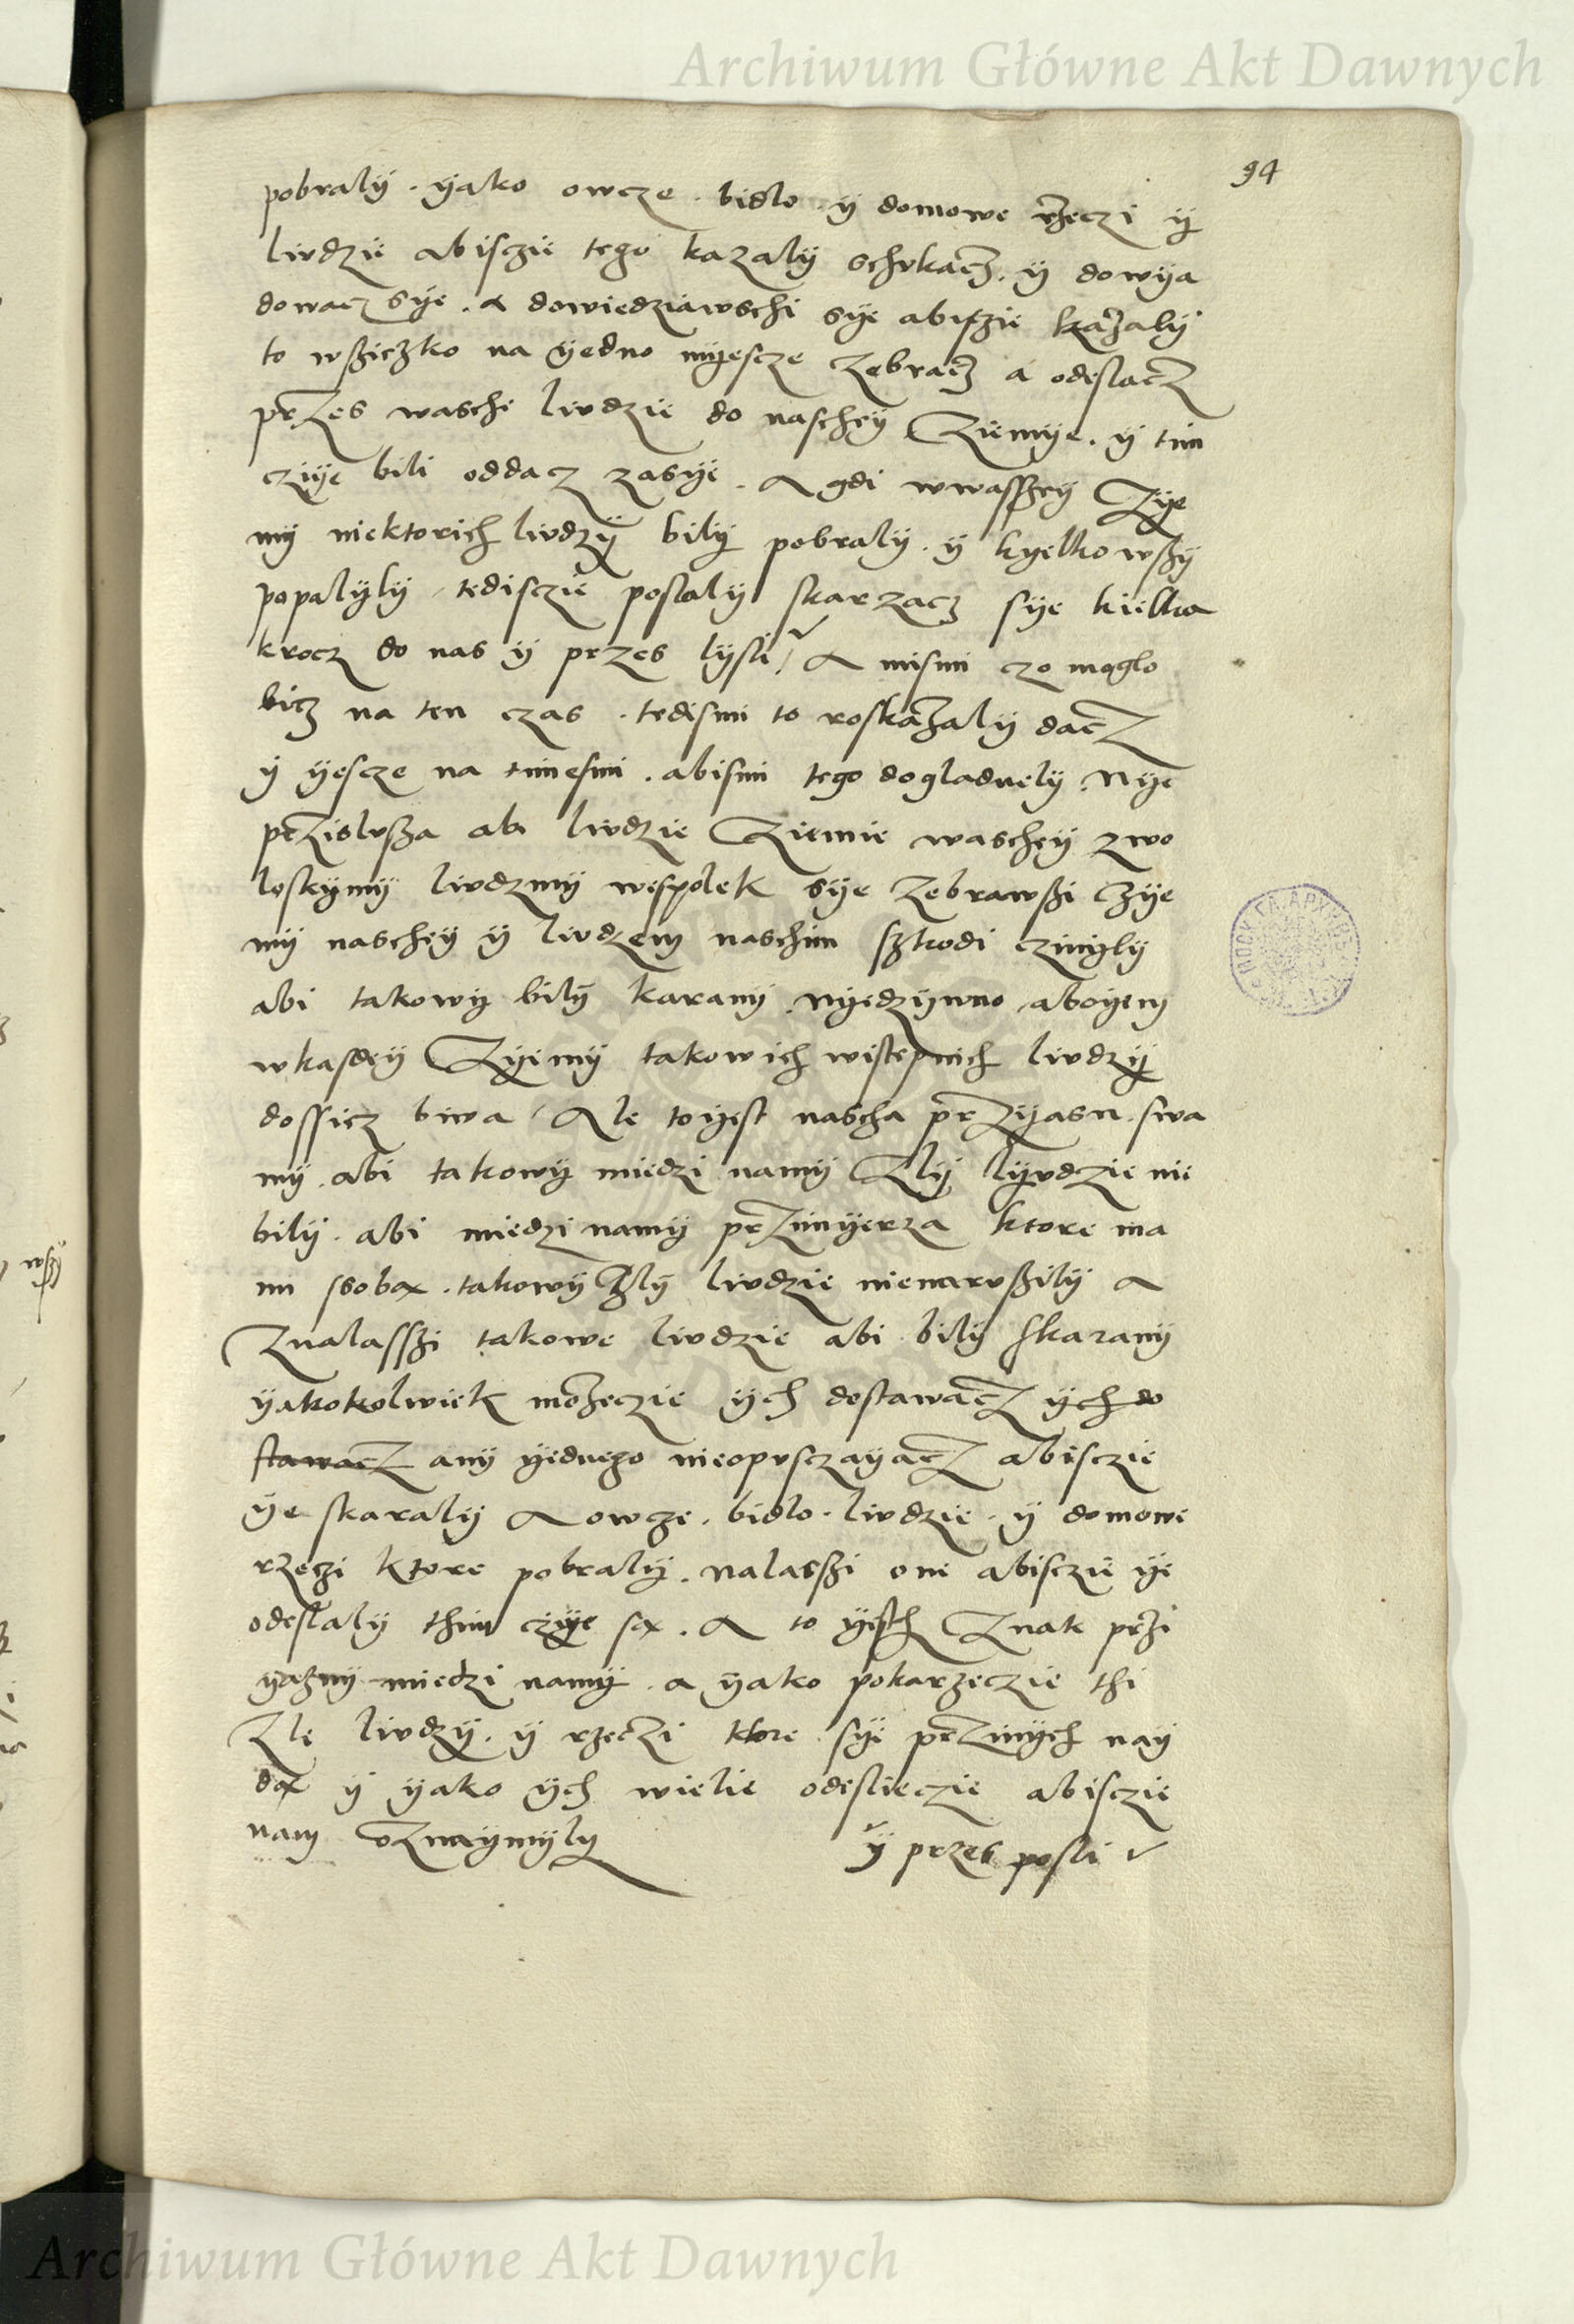 Archiwum Główne Akt Dawnych
94
pobralÿ . ÿako owcze . bidlo . ÿ domowe rzeczi ÿ
liudzie abisczie tego kazalÿ schukacz . ÿ dowÿa
dowacz sÿe . a dowiedziawschi sÿe abisczie kazalÿ
to wßiczko na ÿedno mÿescze zebracz a odeslacz
przes waschi liudzie do nascheÿ Ziemÿe . ÿ tim
cziÿe bili oddacz zasÿe . A gdi wwasszeÿ Zÿe
mÿ niektorich liudzÿ bilÿ pobralÿ . ÿ kÿelko wßÿ
popalÿlÿ / tedisczie poslalÿ skarzacz sÿe kielka
krocz do nas ÿ przes lÿsti / A mismi czo moglo
bicz na ten czas . tedismi to roskazalÿ dacz
ÿ ÿescze na timesmi . abismi tego dogladnelÿ . Nÿe
przislußa abi liudzie Ziemie wascheÿ zwo
loskÿmÿ liudzmÿ wespolek sÿe zebrawßi Zÿe
mÿ nascheÿ ÿ liudzem naschim szkodi czinÿlÿ
abi takowÿ bilÿ karanÿ . nÿedzÿwno aboÿem
wkasdeÿ Zÿemÿ takowich wistepnich liudzÿ
dossicz biwa / Ale to ÿest nascha przÿasn . swa
mÿ . abi takowÿ miedzi namÿ Zlÿ lÿudzie nie
bilÿ . abi miedzi namÿ przimÿerza ktore ma
mi ssoba . takowÿ Zlÿ liudzie nienarußilÿ a
Znalasßi takowe liudzie abi bilÿ skaranÿ
ÿakokolwiek mozeczie ÿch dostawacz ÿch do
stawacz anÿ ÿednego nieopusczaÿacz abisczie
ÿe skaralÿ A owcze . bidlo . liudzie . ÿ domowe
rzeczi ktore pobralÿ . nalasßi one abisczie ÿe
odeslalÿ thim czÿe sa . A to ÿesth Znak przi
ÿaznÿ miedzi namÿ . a ÿako pokarzeczie thi
Zle liudzÿ . ÿ rzeczi ktore sÿe przinÿch naÿ
da ÿ ÿako ÿch wielie odeslieczie abisczie
nam oznaÿmÿlÿ ÿ przes posli
Archiwum Główne Akt Dawnych